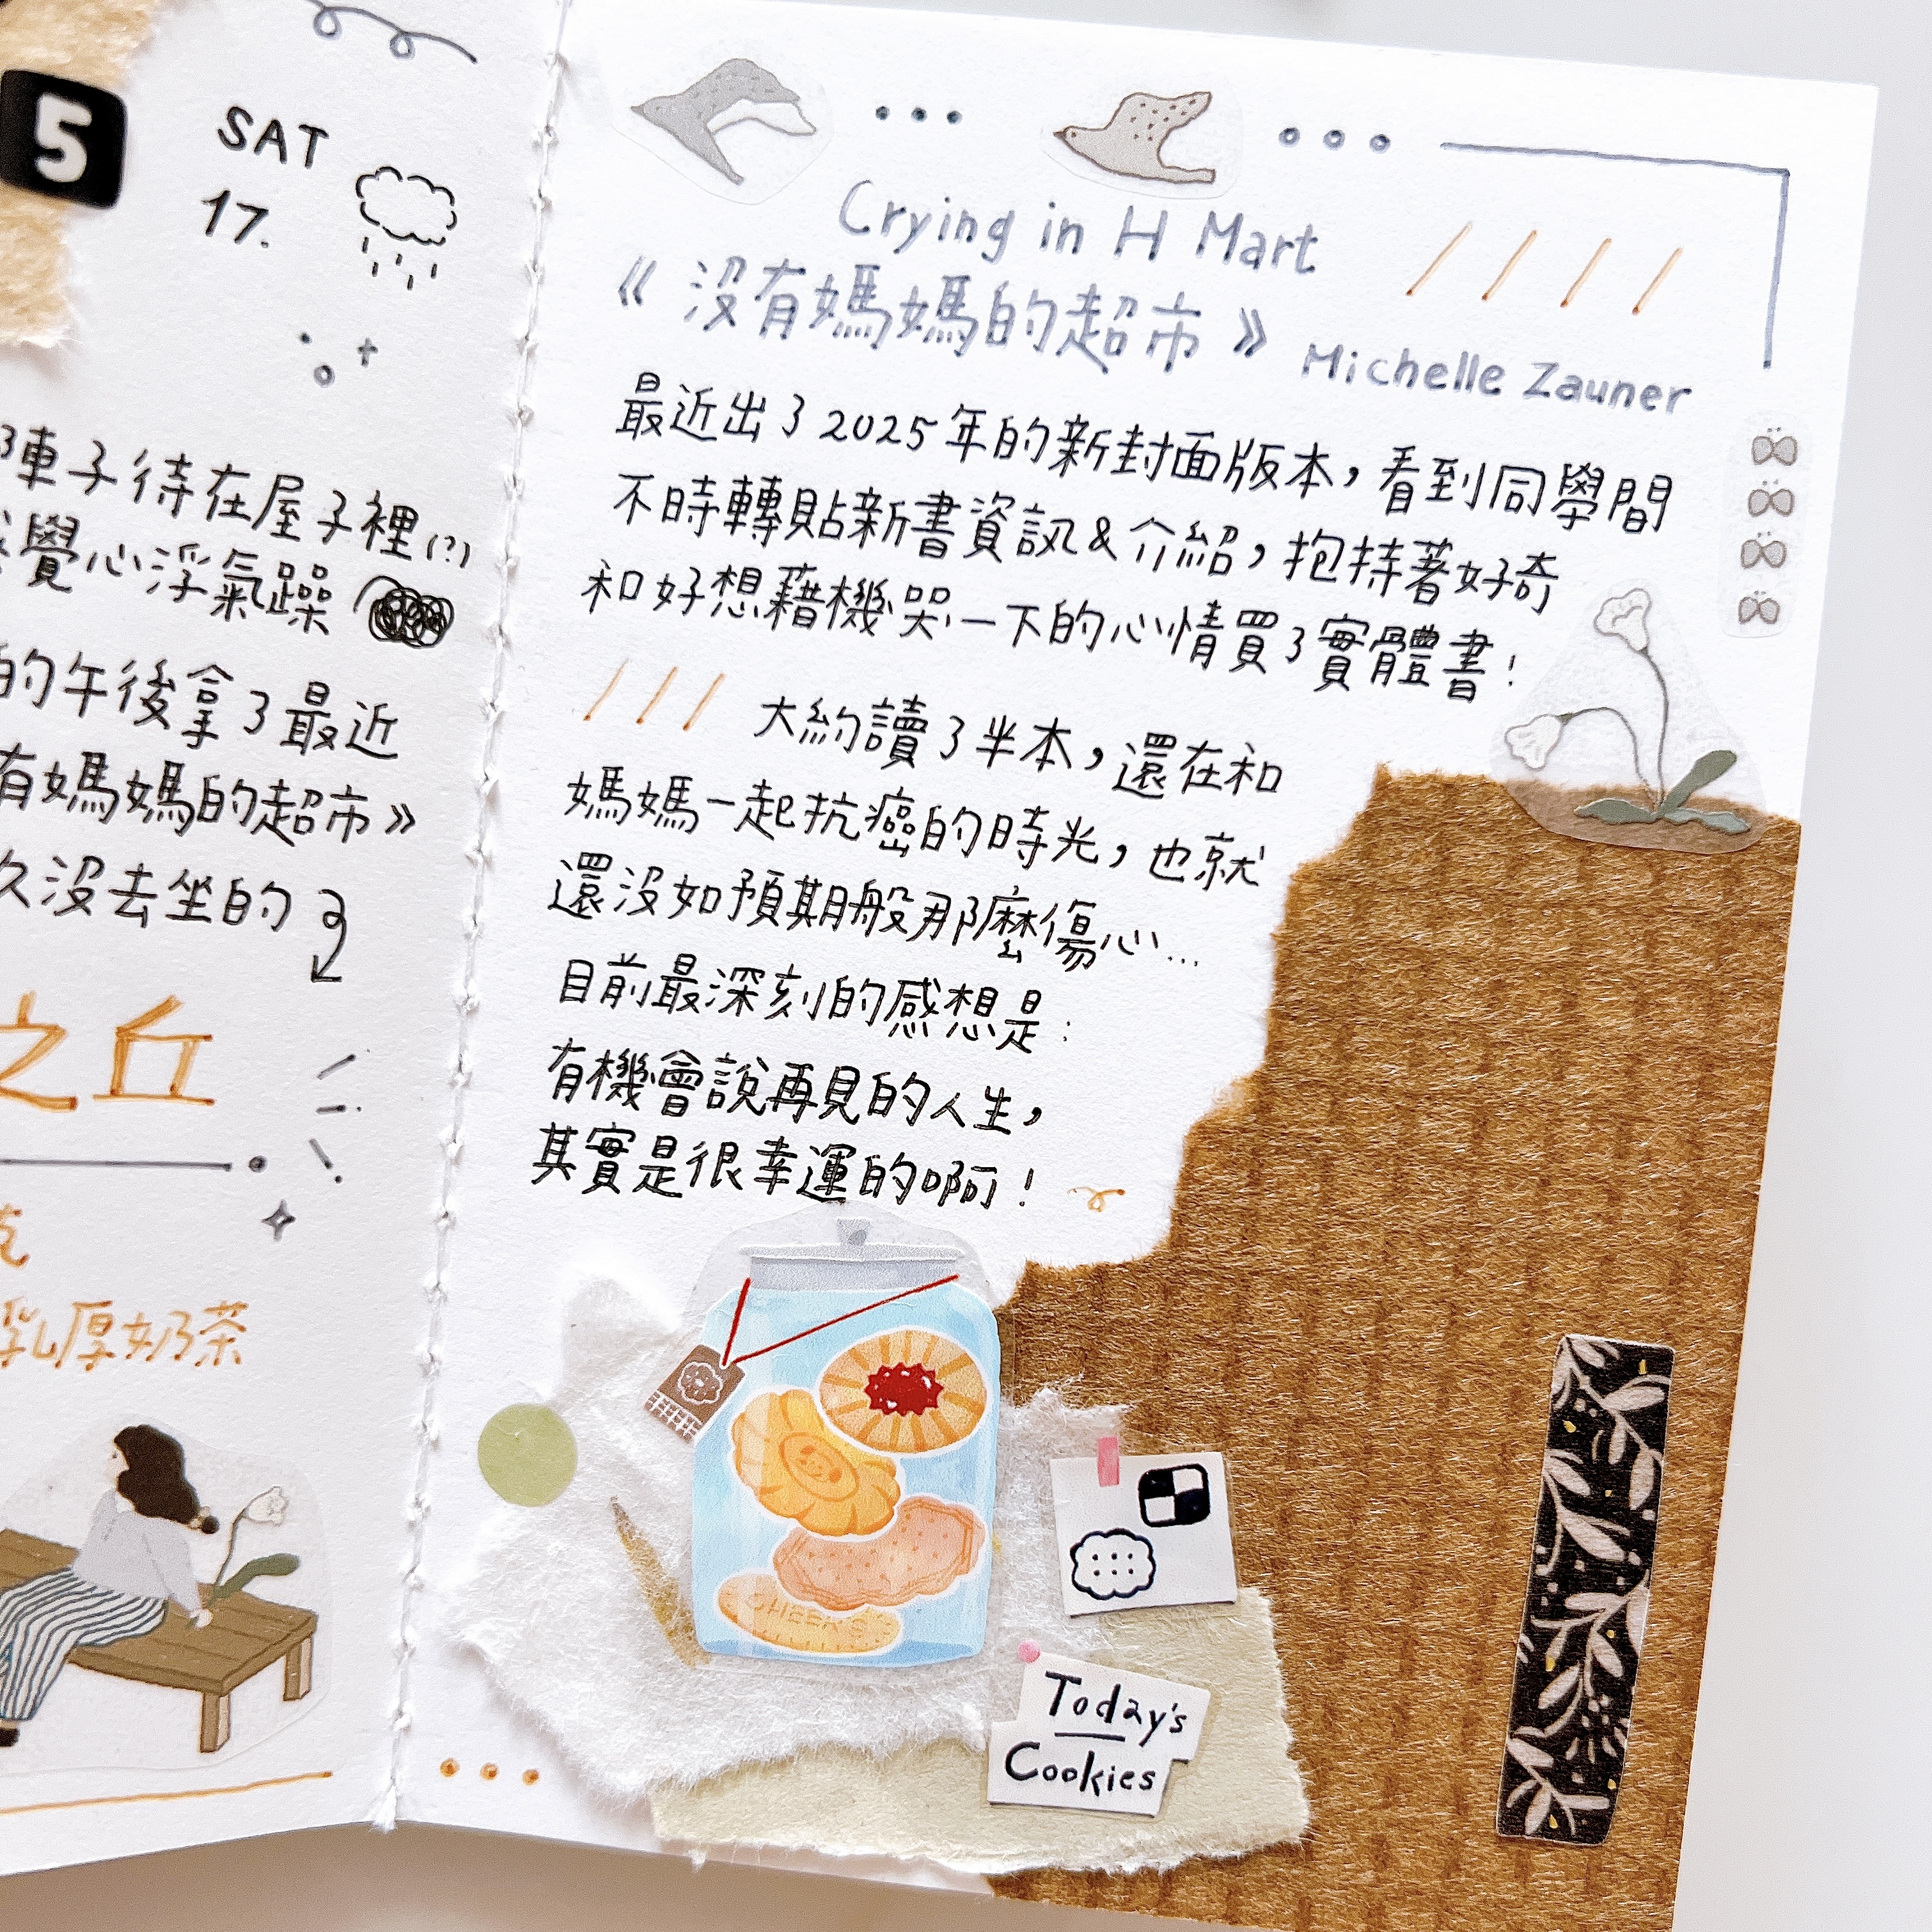 5
SAT
17.
陣子待在屋子裡(?)
覺心浮氣躁
的午後拿了最近
有媽媽的超市》
久沒去坐的
之丘
乳厚奶茶
Crying in H Mart
《沒有媽媽的超市》 Michelle Zauner
最近出了2025年的新封面版本，看到同學間
不時轉貼新書資訊&介紹，抱持著好奇
和好想藉機哭一下的心情買了實體書！
大約讀了半本，還在和
媽媽一起抗癌的時光，也就
還沒如預期般那麼傷心...
目前最深刻的感想是：
有機會說再見的人生，
其實是很幸運的啊！
Today's
Cookies